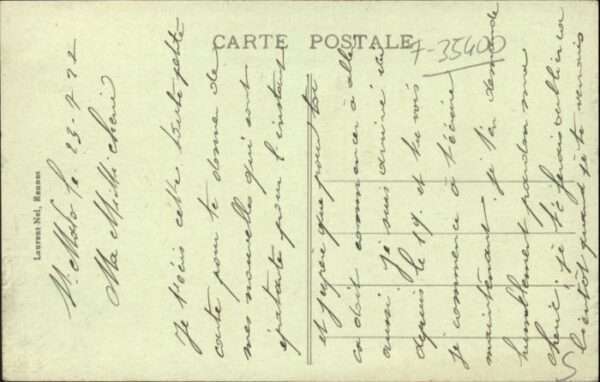 CARTE POSTALE
7-35400
Laurent Nel, Rennes
St Malo le 23-7-22
Ma Mitti cherie
Je t'écris cette toute petite
carte pour te donner de
mes nouvelles qui sont
épatante pour l'instant
et j'espère que pour toi
ca doit commencer à aller
aussi. Je suis arrivé ici
depuis le 19. et tu vois
je commence à t'écrire
maintenant. je t'en demande
humblement pardon ma
cherie. je te ferai oublier ca
bientôt quand je te verrais